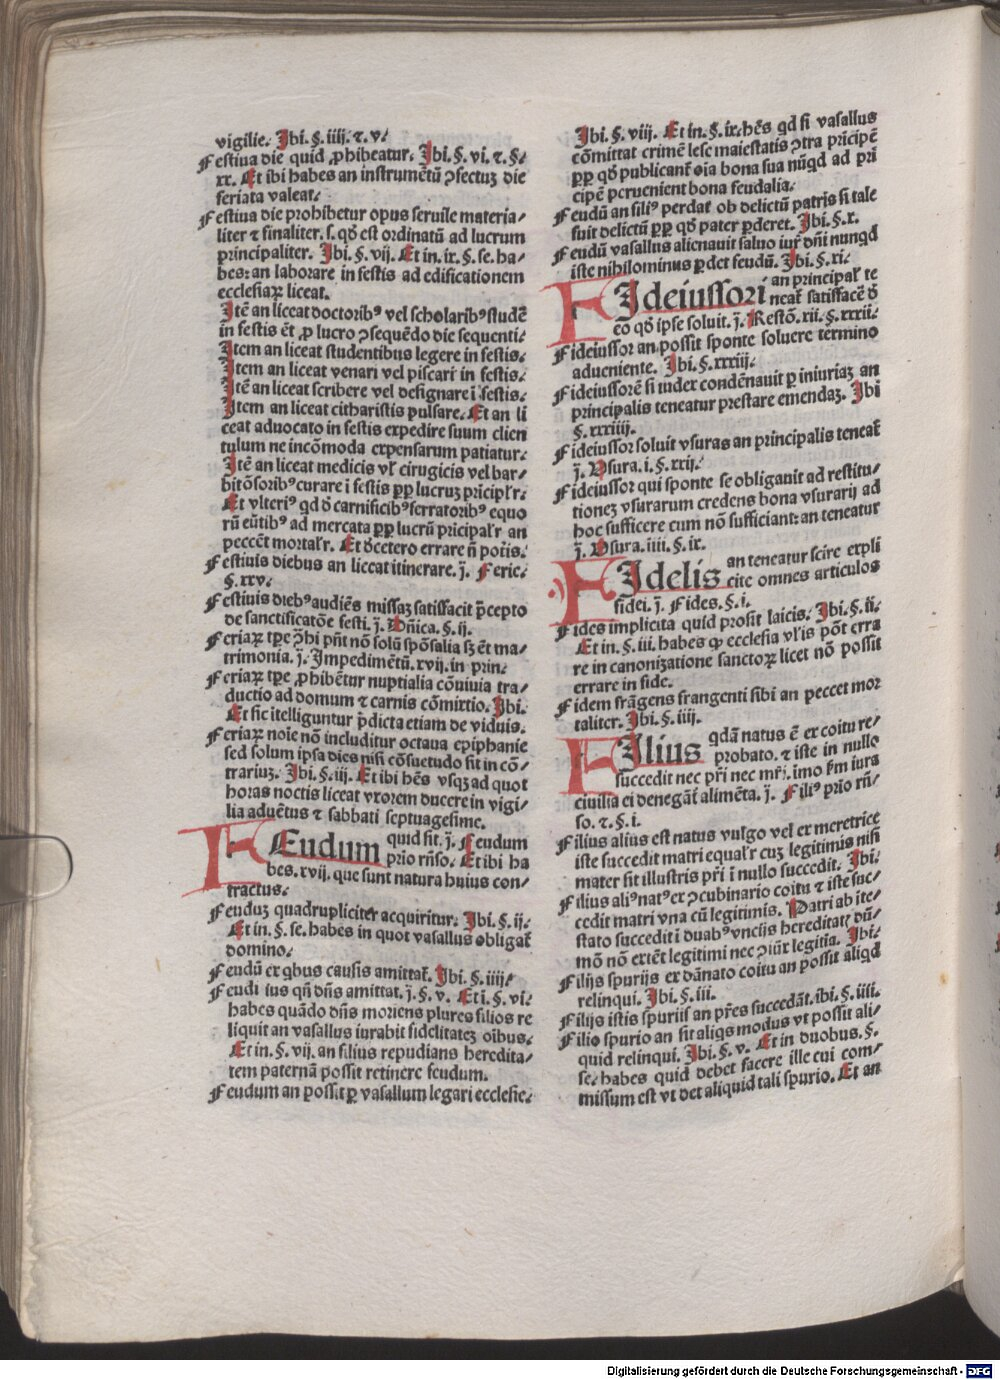 vigilie. Ibi. §. iiij. ⁊. v.
Festiua die quid ꝓhibeatur. Ibi. §. vi. ⁊. §.
xx. Et ibi habes an instrumētū ꝯfectuꝫ die
feriata valeat.
Festiua die prohibetur opus seruile materia/
liter ⁊ finaliter. s. qď est ordinatū ad lucrum
principaliter. Ibi. §. vij. Et in. ix. §. se. ha/
bes: an laborare in festis ad edificationem
ecclesiaꝝ liceat.
Itē an liceat doctoribꝰ vel scholaribꝰ studē
in festis ēt ꝓ lucro ꝯsequēdo die sequenti.
Item an liceat studentibus legere in festis.
Item an liceat venari vel piscari in festis.
Itē an liceat scribere vel designare ī festis.
Item an liceat citharistis pulsare. Et an li
ceat aduocato in festis expedire suum clien
tulum ne incōmoda expensarum patiatur.
Itē an liceat medicis vl' cirugicis vel bar/
bitōsoribꝰ curare ī festis ꝓp lucruꝫ prīcipl'r.
Et vlteriꝰ qd ď carnificibꝰ ferratoribꝰ equo
rū eūtibꝰ ad mercata ꝓp lucrū pricipal'r an
peccēt mortal'r. Et ďcetero errare ñ potīs.
Festiuis diebus an liceat itinerare. j. Ferie.
§. xxv.
Festiuis diebꝰ audiēs missaꝫ satisfacit p̄cepto
de sanctificatōe festi. j. Dn̄ica. §. ij.
Feriaꝝ tp̄e ꝯbi pn̄t nō solū spōsalia sꝫ ēt ma/
trimonia. j. Impedimētū. xvij. in prin.
Feriaꝝ tp̄e ꝓhibētur nuptialia cōuiuia tra/
ductio ad domum ⁊ carnis cōmixtio. Ibi.
Et sic itelliguntur p̄dicta etiam de viduis.
Feriaꝝ noie nō includitur octaua epiphanie
sed solum ipsa dies nisi cōsuetudo sit in cō/
trariuꝫ. Ibi. §. iij. Et ibi hēs vsqꝫ ad quot
horas noctis liceat vxorem ducere in vigi/
lia aduētus ⁊ sabbati septuagesime.
FEudum quid sit. j. Feudum
prio rn̄so. Et ibi ha
bes. xvij. que sunt natura huius con/
tractus.
Feuduꝫ quadrupliciter acquiritur. Ibi. §. ij.
Et in. §. se. habes in quot vasallus obligat̄
domino.
Feudū ex qbus causis amittat̄. Ibi. §. iiij.
Feudi ius qn̄ dn̄s amittat. j. §. v. Et ī. §. vi.
habes quādo dn̄s moriens plures filios re
liquit an vasallus iurabit fidelitateꝫ oibus.
Et in. §. vij. an filius repudians heredita/
tem paternā possit retinere feudum.
Feudum an possit ꝑ vasallum legari ecclesie.
Ibi. §. viij. Et in. §. ix. hēs qd si vasallus
cōmittat crimē lese maiestatis ꝯtra prīcipē
ꝓp qď publicant̄ oia bona sua nūqd ad pri
cipē perueniēt bona feudalia.
Feudū an filiꝰ perdat ob delictū patris si tale
fuit delictū ꝓp qď pater ꝑderet. Ibi. §. x.
Feudū vasallus alienauit saluo iur̄ dn̄i nunqd
iste nihilominus ꝑdet feudū. Ibi. §. xi.
FIdeiussori an principal'r te
neat̄ satisfacē ď
eo qď ipse soluit. j. Restō. xii. §. xxxii.
Fideiussor an possit sponte soluere termino
adueniente. Ibi. §. xxxiij.
Fideiussorē si iudex condēnauit ꝑ iniuriaꝫ an
principalis teneatur prestare emendaꝫ. Ibi
§. xxxiiij.
Fideiussor soluit vsuras an principalis teneat̄
j. Vsura. i. §. xxij.
Fideiussor qui sponte se obligauit ad restitu/
tioneꝫ vsurarum credens bona vsurarij ad
hoc sufficere cum nō sufficiant: an teneatur
j. Vsura. iiii. §. ix.
FIdelis an teneatur scire expli
cite omnes articulos
fidei. j. Fides. §. i.
Fides implicita quid prosit laicis. Ibi. §. ii.
Et in. §. iii. habes ꝙ ecclesia vl'is pōt erra
re in canonizatione sanctoꝝ licet nō possit
errare in fide.
Fidem frāgens frangenti sibi an peccet mor
taliter. Ibi. §. iiij.
FIlius qdā natus ē ex coitu re/
probato. ⁊ iste in nullo
succedit nec pr̄i nec mr̄i. imo ẜm iura
ciuilia ei denegāt̄ alimēta. j. Filiꝰ prio rn̄/
so. ⁊. §. i.
Filius alius est natus vulgo vel ex meretrice
iste succedit matri equal'r cuꝫ legitimis nisi
mater sit illustris pr̄i ī nullo succedit. Ibi.
Filius aliꝰ natꝰ ex ꝯcubinario coitu ⁊ iste suc/
cedit matri vna cū legitimis. Patri ab ite/
stato succedit ī duabꝰ vncijs hereditat̄ dū/
mō nō extēt legitimi nec ꝯiūx legitīa. Ibi.
Filijs spurijs ex dānato coitu an possit aliqd
relinqui. Ibi. §. iii.
Filijs istis spuriis an pr̄es succedāt. ibi. §. iiii.
Filio spurio an sit aliqs modus vt possit ali/
quid relinqui. Ibi. §. v. Et in duobus. §.
se. habes quid debet facere ille cui com/
missum est vt det aliquid tali spurio. Et an
Digitalisierung gefördert durch die Deutsche Forschungsgemeinschaft - DFG